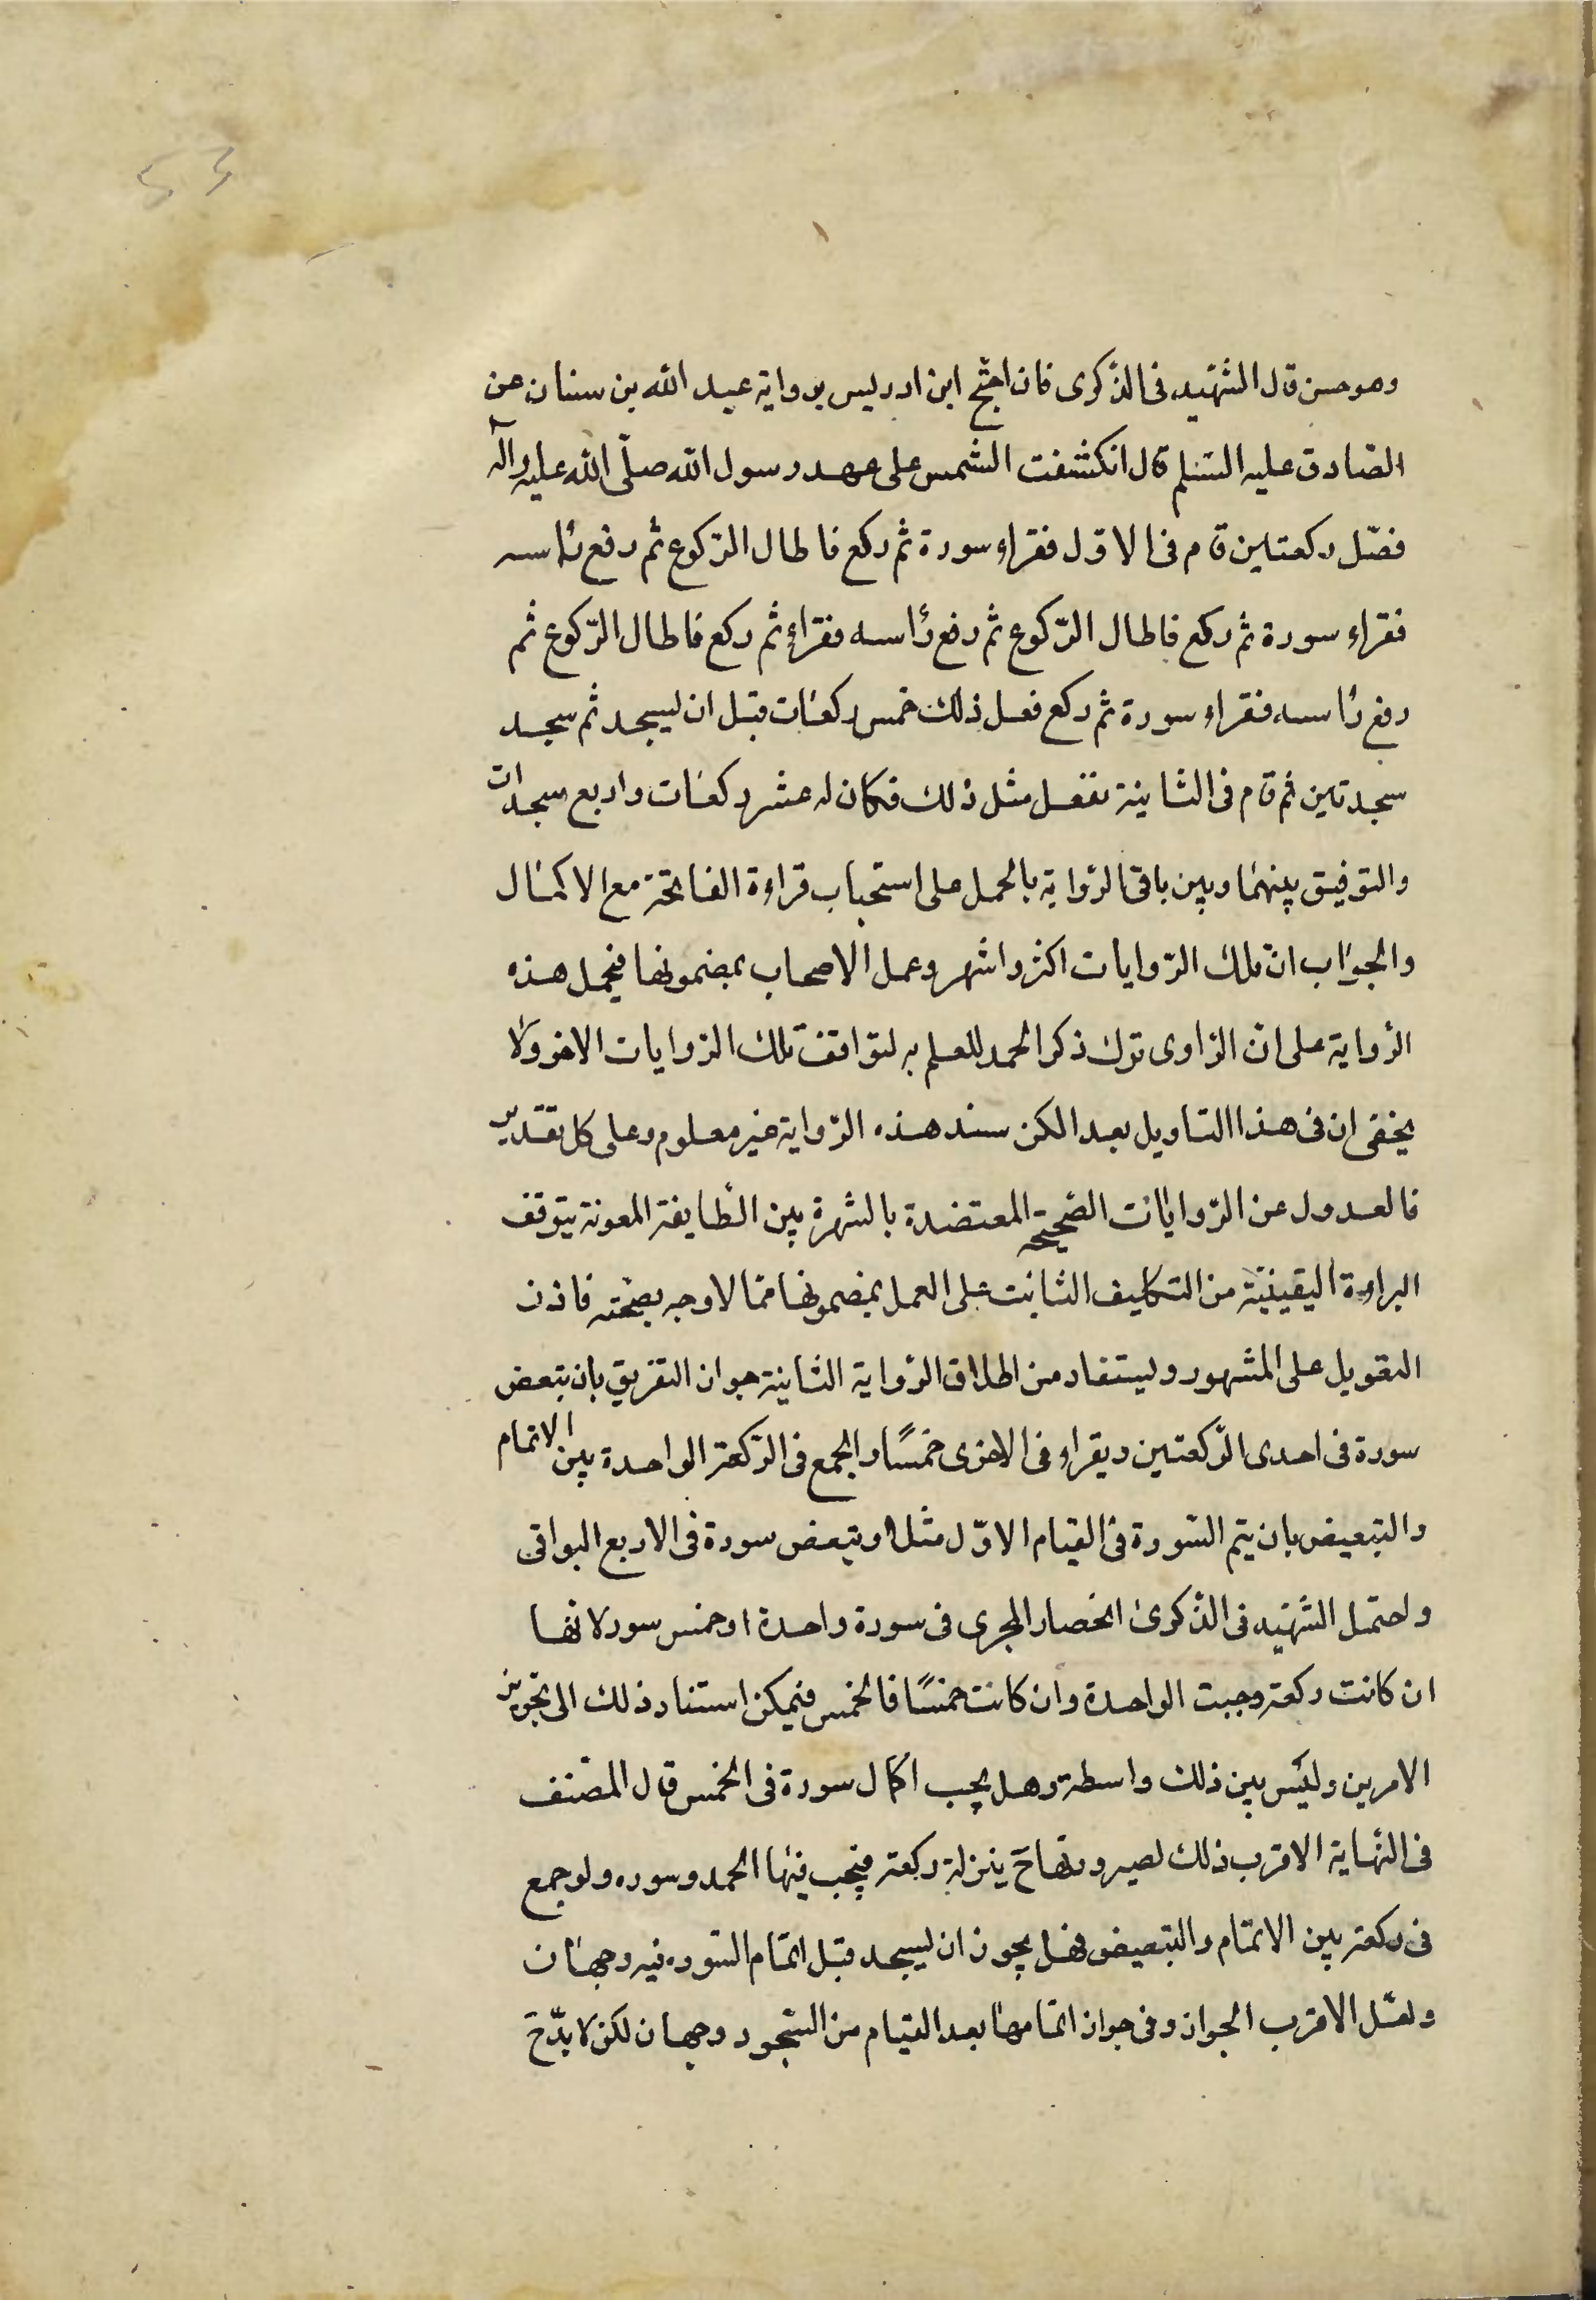 وهو حسن قال الشهيد فى الذكرى فان احتج ابن ادريس برواية عبد الله بن سنان عن
الصّادق عليه السّلم قال انكشفت الشمس على عهد رسول الله صلّى الله عليه واله
فصلّ ركعتين قام فى الاوّل فقراء سورة ثم ركع فاطال الرّكوع ثم رفع رأسه
فقراء سورة ثم ركع فاطال الرّكوع ثم رفع رأسه فقراء ثم ركع فاطال الرّكوع ثم
رفع رأسه فقراء سورة ثم ركع فعل ذلك خمس ركعات قبل ان يسجد ثم سجد
سجدتين ثم قام فى الثانية ففعل مثل ذلك فكان له عشر ركعات واربع سجدات
والتوفيق بينهما وبين باقى الرّواية بالحمل على استحباب قراءة الفاتحة مع الاكمال
والجواب انّ تلك الرّوايات اكثر واشهر وعمل الاصحاب بمضمونها فيحمل هذه
الرّواية على انّ الرّاوى ترك ذكر الحمد للعلم به لتوافق تلك الرّوايات الاخر ولا
يخفى ان فى هذا التاويل بعد الكن سند هذه الرّواية غير معلوم وعلى كل تقدير
فالعدول عن الرّوايات الصّحيحة المعتضدة بالشهرة بين الطّايفة المعونة يتوقف
البراءة اليقينيّة من التكليف الثابت على العمل بمضمونها ممّا لا وجه بصحّته فاذن
التعويل على المشهور ويستفاد من اطلاق الرّواية الثانية جواز التفريق بان يتبعض
سورة فى احدى الرّكعتين ويقراء فى الاخرى خمسًا والجمع فى الرّكعة الواحدة بين الاتمام
والتبعيض بان يتم السّورة فى القيام الاوّل مثلا ويتبعض سورة فى الاربع البواقى
واحتمل الشّهيد فى الذّكرى انحصار المجرى فى سورة واحدة او خمس سور لانها
ان كانت ركعة وجبت الواحدة وان كانت خمسًا فالخمس فيمكن استناد ذلك الى تجويز
الامرين وليس بين ذلك واسطة وهل يجب اكمال سورة فى الخمس قال المصنف
فى النّهاية الاقرب ذلك لصيرورتها ح بمنزلة ركعة فيجب فيها الحمد وسوره ولو جمع
فى ركعة بين الاتمام والتبعيض فهل يجوز ان يسجد قبل اتمام السّوره فيه وجهان
ولعلّ الاقرب الجواز وفى جواز اتمامها بعد القيام من السّجود وجهان لكن لا بدّ ح